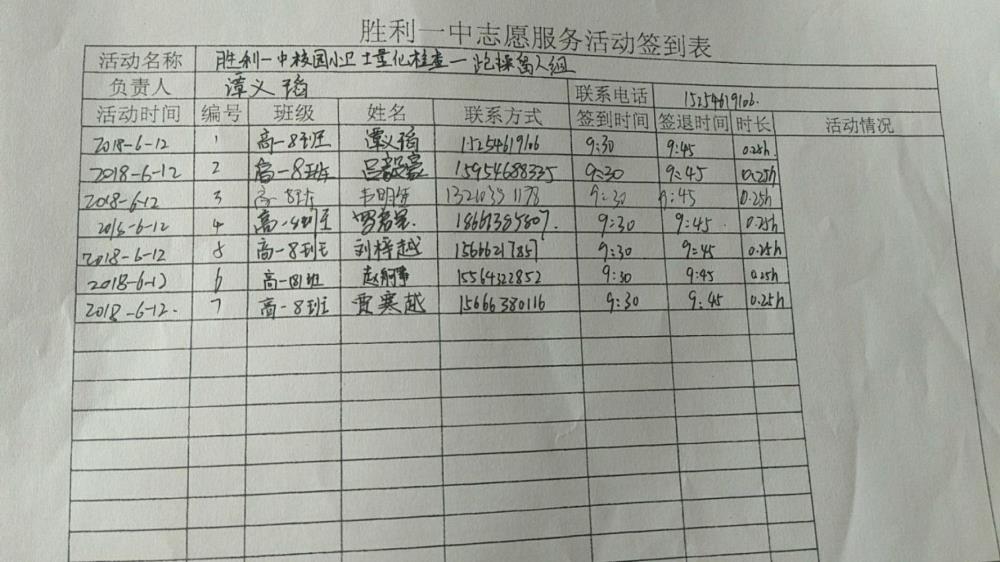 胜利一中志愿服务活动签到表
活动名称 胜利一中校园小卫士量化检查一跑操留人组
负责人 谭义韬 联系电话 15254619106.
活动时间 编号 班级 姓名 联系方式 签到时间 签退时间 时长 活动情况
2018-6-12 1 高一8班 谭义韬 15254619106 9:30 9:45 0.25h
2018-6-12 2 高一8班 吕毅豪 15954688335 9:30 9:45 0.25h
2018-6-12 3 高一8班 韦明 9:30 9:45 0.25h
2018-6-12 4 高一8班 18661385807. 9:30 9:45 0.25h
2018-6-12 8 高一8班 刘梓越 15666217857 9:30 9:45 0.25h
2018-6-12 6 高一8班 赵 15564322852 9:30 9:45 0.25h
2018-6-12. 7 高一8班 贾寒越 15666380116 9:30 9:45 0.25h